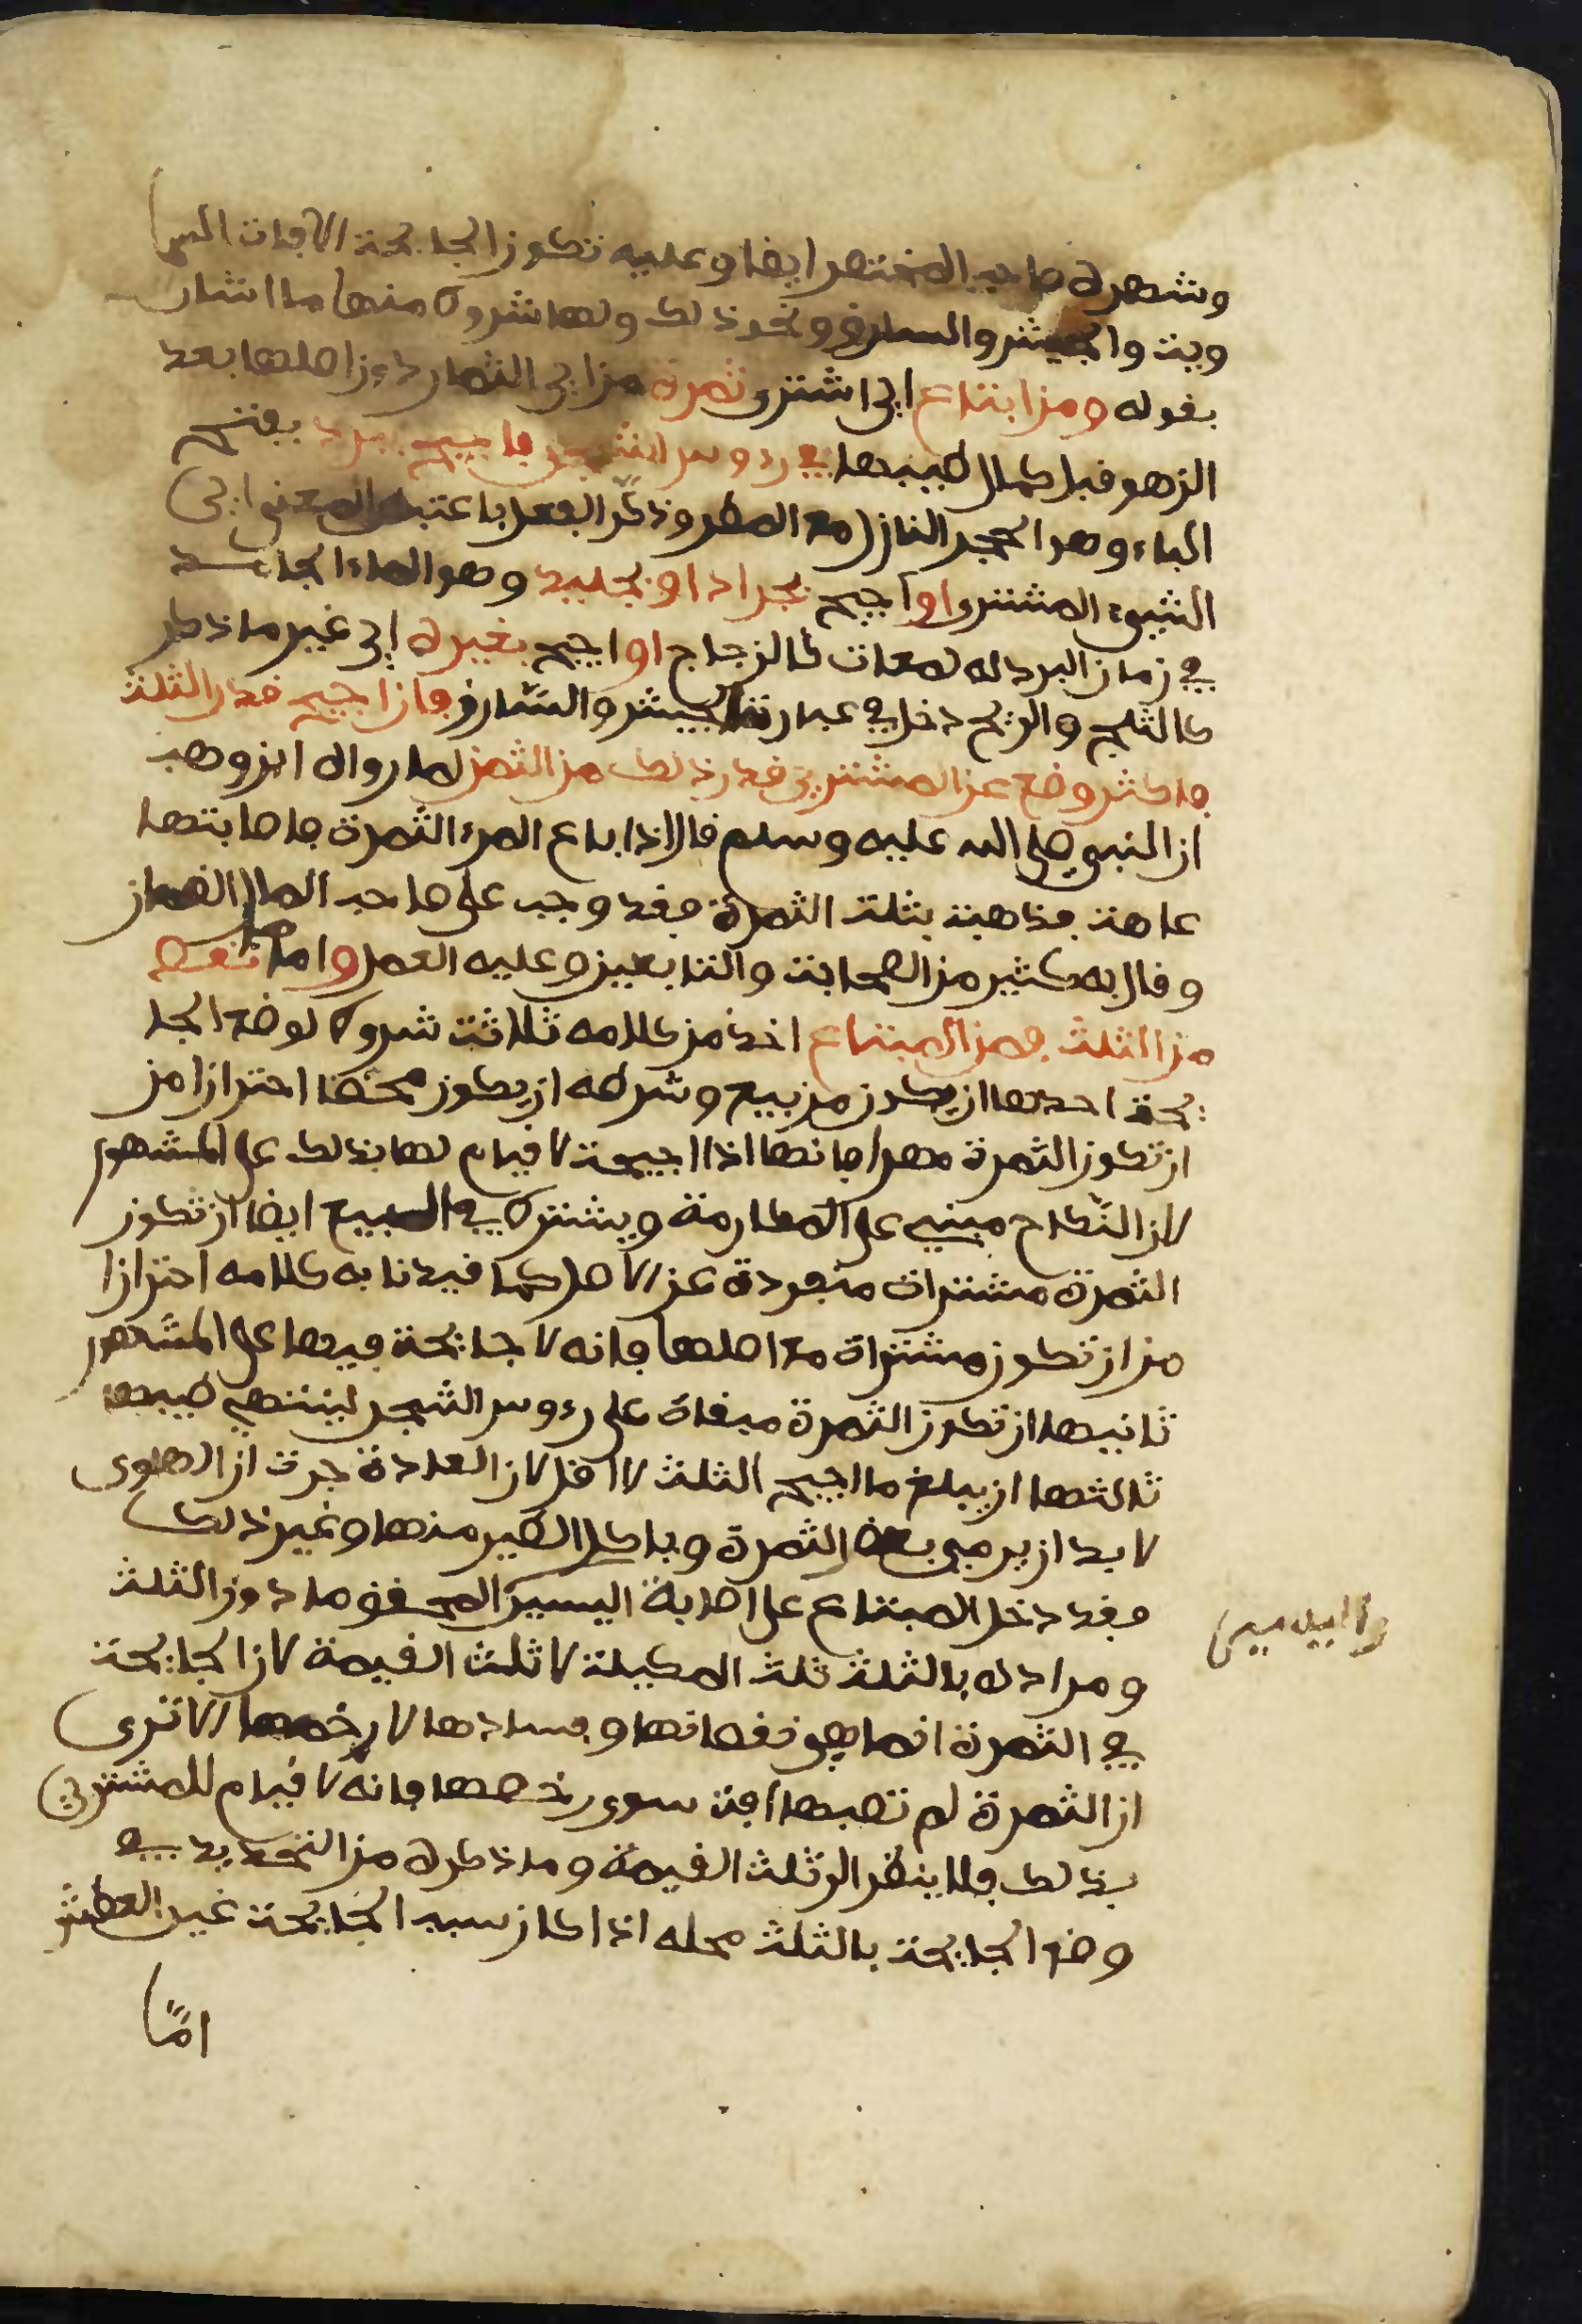 وشهره صاحب المختصر ايضا وعليه تكون الجايحة الافات السما
وية والجيش والسارق ونحو ذلك ولها شروط منها ما اشار
بقوله ومن ابتاع اي اشترى ثمرة من اي الثمار دون اصلها بعد
الزهو قبل كمال طيبها في رءوس الشجر فاجيح ببرد بفتح
الباء وهو الحجر النازل مع المطر وذكر الفعل باعتبار المعنى اي
الشيء المشترى او اجيح بجراد او بجليد وهو الماء الجامد
في زمان البرد له لمعان كالزجاج او اجيح بغيره اي غير ما ذكر
كالثلج والريح دخل في عبارته الجيش والسارق فان اجيح قدر الثلث
فاكثر وضع عن المشتري قدر ذلك من الثمن لما رواه ابن وهب
ان النبي صلى الله عليه وسلم قال اذا باع المرء الثمرة فاصابتها
عاهة فذهبت بثلث الثمرة فقد وجب على صاحب المال الضمان
وقال به كثير من الصحابة والتابعين وعليه العمل واما ما نقص
من الثلث فمن المبتاع اخذ من كلامه ثلاثة شروط لوضع الجا
يحة احدها ان يكون من بيع وشرطه ان يكون محضا احترازا من
ان تكون الثمرة مهرا فانها اذا اجيحة لا قيام لها بذلك على المشهور
لان النكاح مبني على المكارمة ويشترط في البيع ايضا ان تكون
الثمرة مشترات منفردة عن الاصل كما قيدنا به كلامه احترازا
من ان تكون مشتراة مع اصلها فانه لا جايحة فيها على المشهور
ثانيها ان تكون الثمرة مبقاة على رءوس الشجر لينتهي طيبها
ثالثها ان يبلغ ما اجيح الثلث لا اقل لان العادة جرت ان الهوى
لا بد ان يرمي بعض الثمرة وياكل الطير منها وغير ذلك
فقد دخل المبتاع على اصابة اليسير المحقق ما دون الثلث
ومراده بالثلث ثلث المكيلة لا ثلث القيمة لان الجايحة
في الثمرة انما هو نقصانها وفسادها لا رخصها الا ترى
ان الثمرة لم تصبها افة سوى رخصها فانه لا قيام للمشتري
بذلك فلا ينظر الى ثلث القيمة وما ذكره من التحديد في
وضع الجايحة بالثلث محله اذا كان سبب الجايحة غير العطش
اما